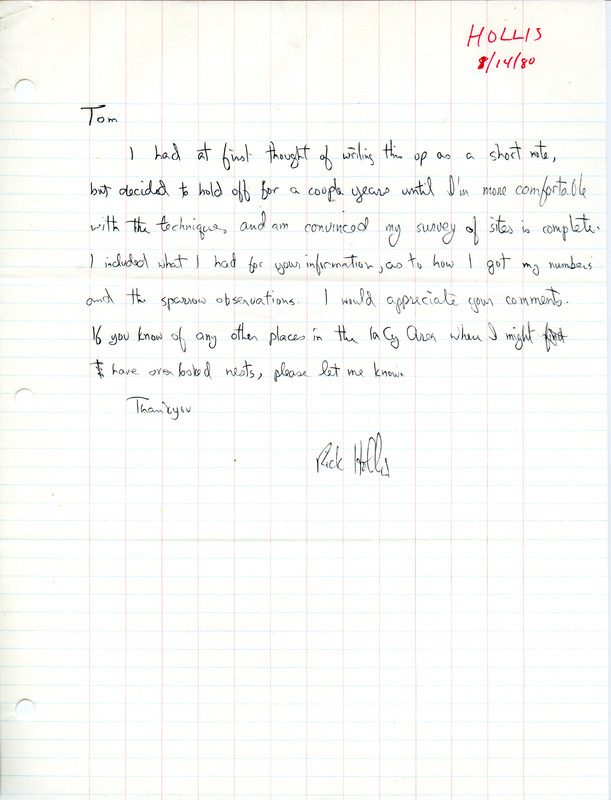 HOLLIS
8/14/80
Tom
I had at first thought of writing this up as a short note,
but decided to hold off for a couple years until I'm more comfortable
with the techniques, and am convinced my survey of sites is complete.
I included what I had for your information, as to how I got my numbers
and the sparrow observations. I would appreciate your comments.
If you know of any other places in the Ia Cy Area where I might
have overlooked nests, please let me know.
Thankyou
Rick Hollis